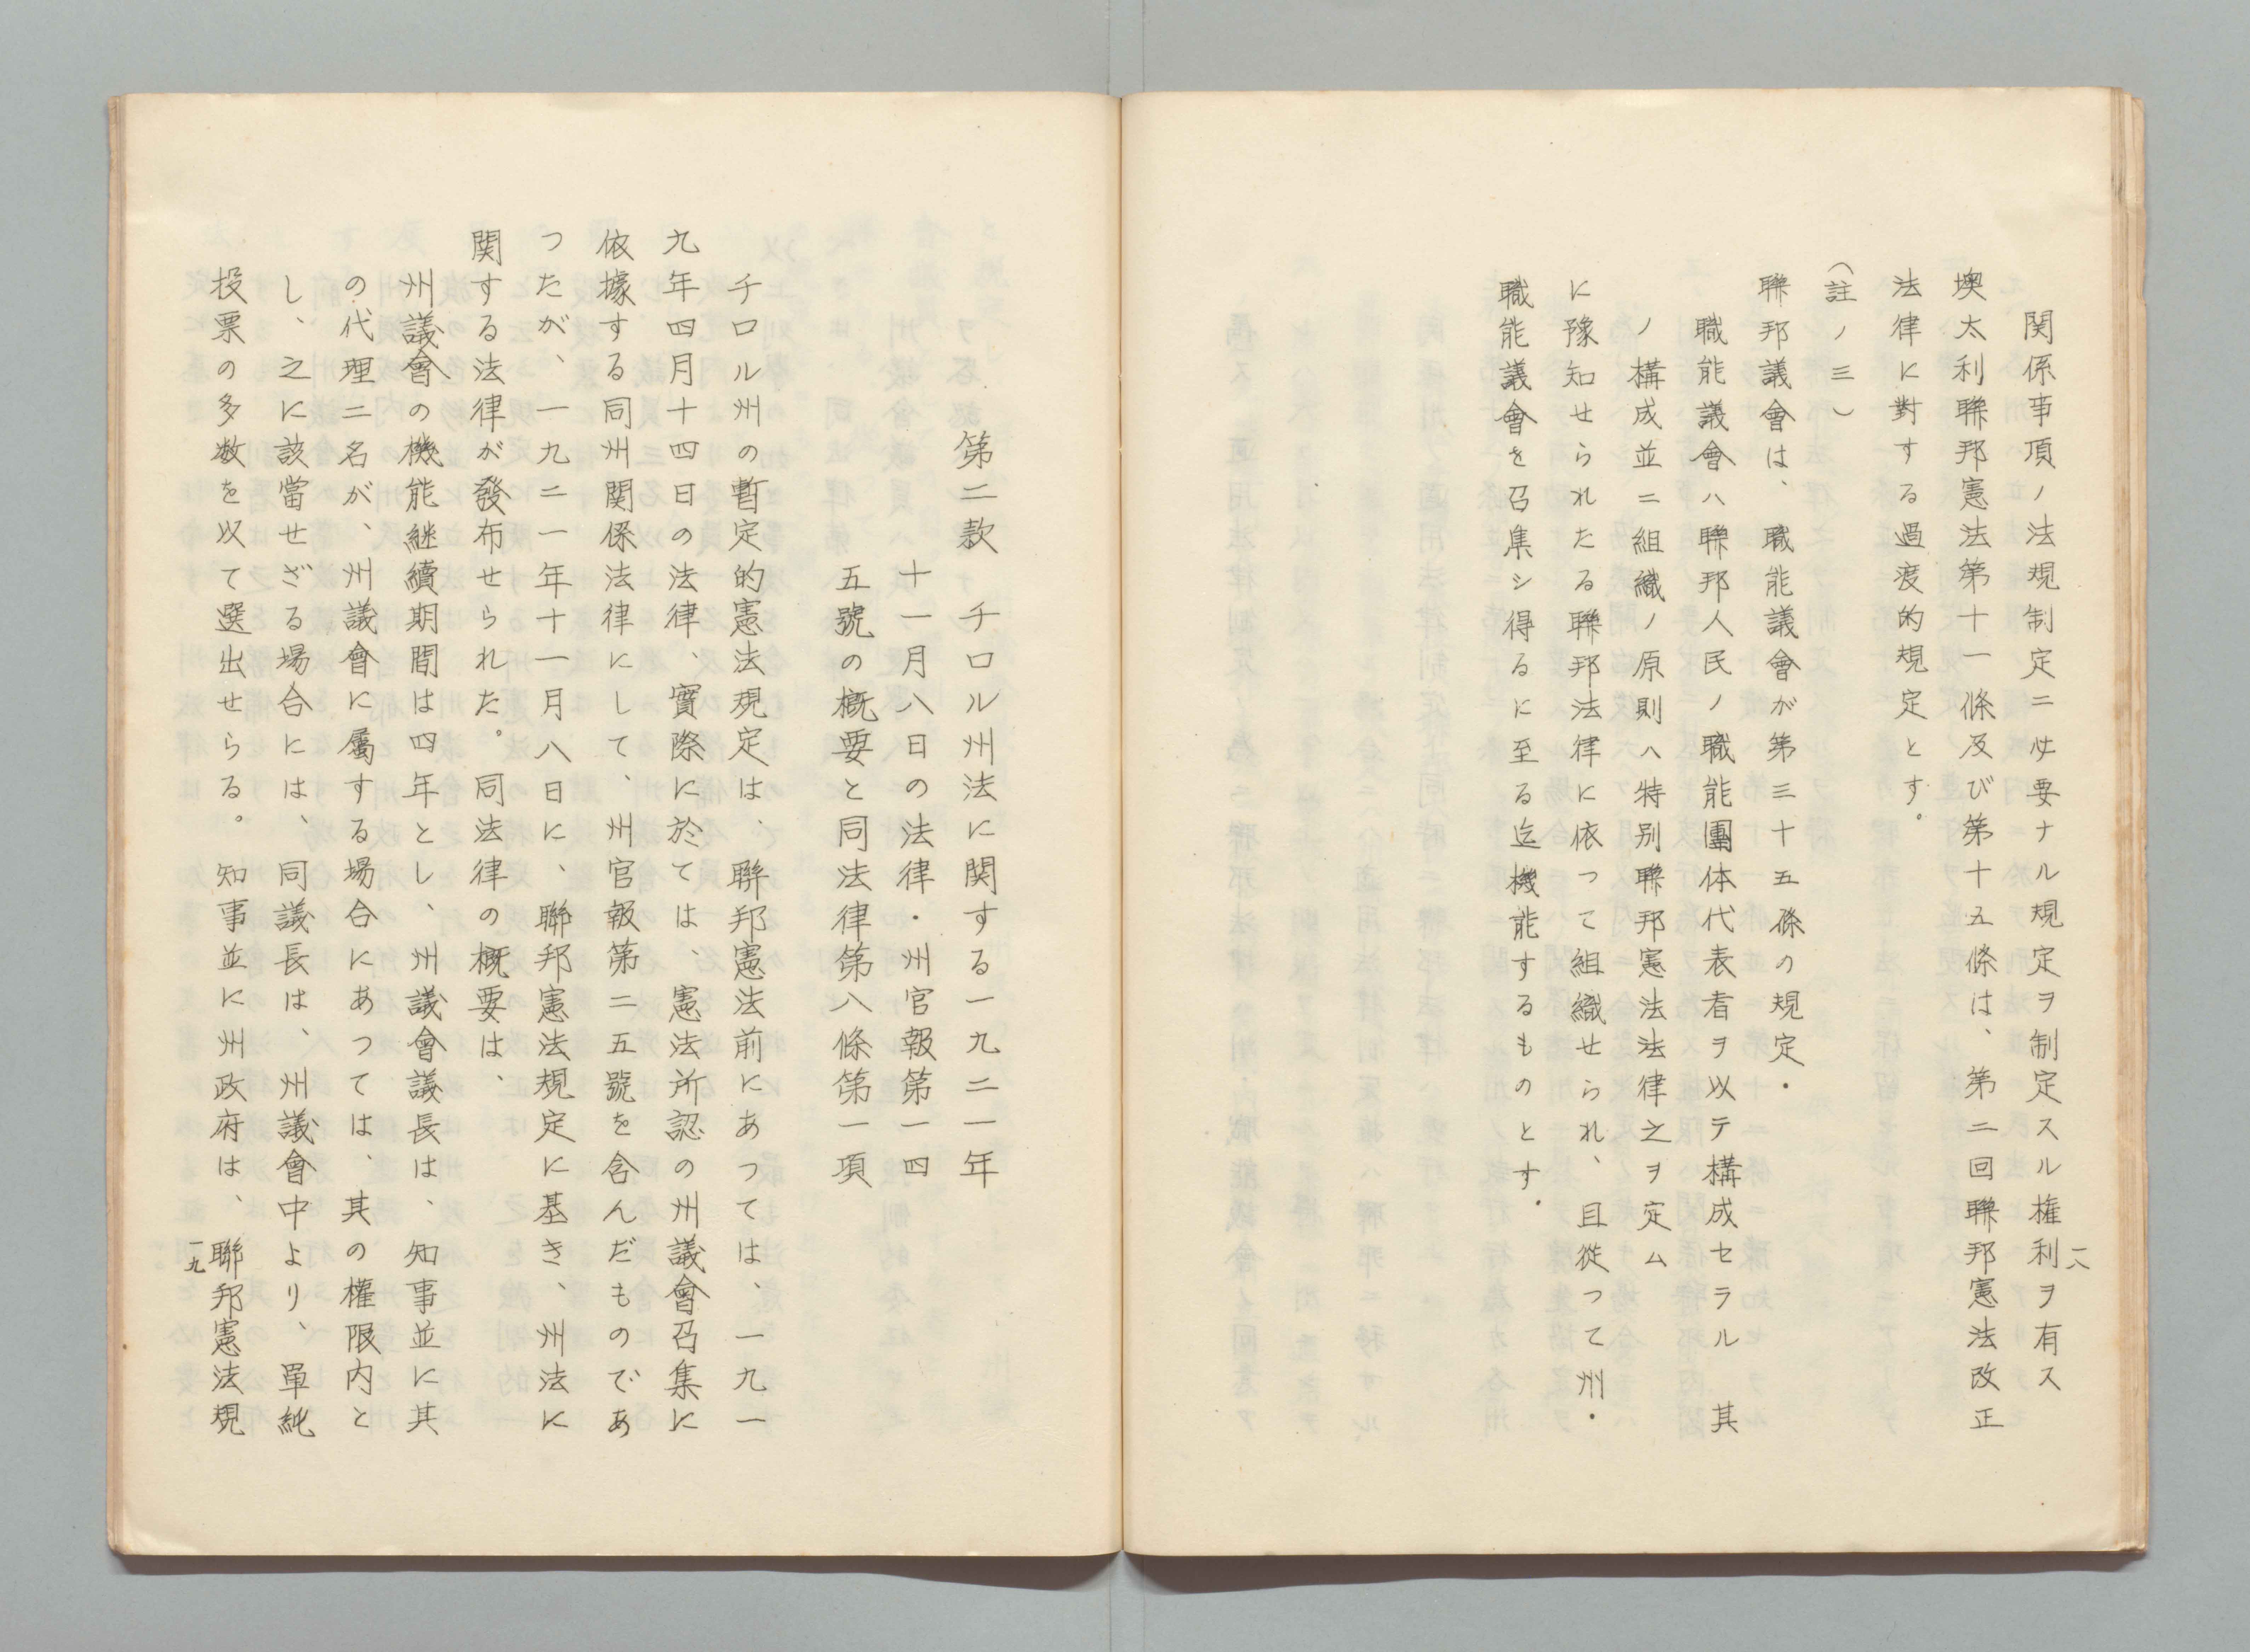 一八
関係事項ノ法規制定ニ必要ナル規定ヲ制定スル権利ヲ有ス
墺太利聯邦憲法第十一條及び第十五條は、第二回聯邦憲法改正
法律に對する過渡的規定とす。
（註ノ三）
聯邦議會は、職能議會が第三十五條の規定・
職能議會ハ聯邦人民ノ職能團体代表者ヲ以テ構成セラル　其
ノ構成並ニ組織ノ原則ハ特別聯邦憲法法律之ヲ定ム
に豫知せられたる聯邦法律に依って組織せられ、且従って州・
職能議會を召集シ得るに至る迄機能するものとす．
第二款　チロル州法に関する一九二一年
十一月八日の法律・州官報第一四
五號の概要と同法律第八條第一項
チロル州の暫定的憲法規定は、聯邦憲法前にあっては、一九一
九年四月十四日の法律、實際に於ては、憲法所認の州議會召集に
依據する同州関係法律にして、州官報第二五號を含んだものであ
ったが、一九二一年十一月八日に、聯邦憲法規定に基き、州法に
関する法律が發布せられた。同法律の概要は、
州議會の機能継續期間は四年とし、州議會議長は、知事並に其
の代理二名が、州議會に屬する場合にあっては、其の權限内と
し、之に該當せざる場合には、同議長は、州議會中より、單純
投票の多数を以て選出せらる。知事並に州政府は、聯邦憲法規
一九